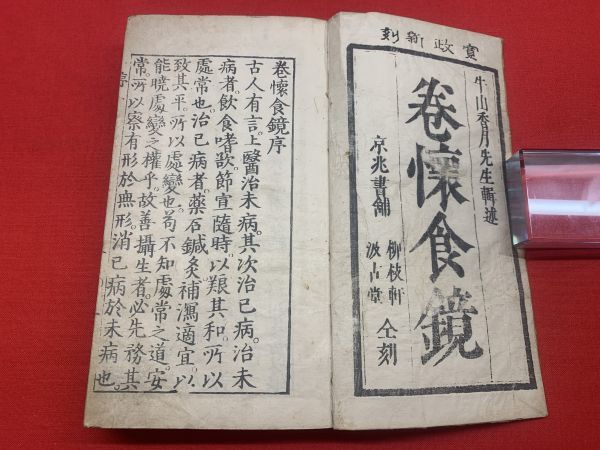 寛政新刻
牛山香月先生輯述
卷懷食鏡
京兆書舗
柳枝軒
汲古堂
仝刻
卷懷食鏡序
古人有言上醫治未病。其次治已病。治未
病者。飲食嗜欲。節宣隨時。以䫀其和。所以
處常也。治已病者。藥石鍼灸。補瀉適宜。以
致其平。所以處變也。苟不知處常之道。安
能曉處變之權乎。故善攝生者。必先務其
常。所以察有形於無形。消已病於未病也。